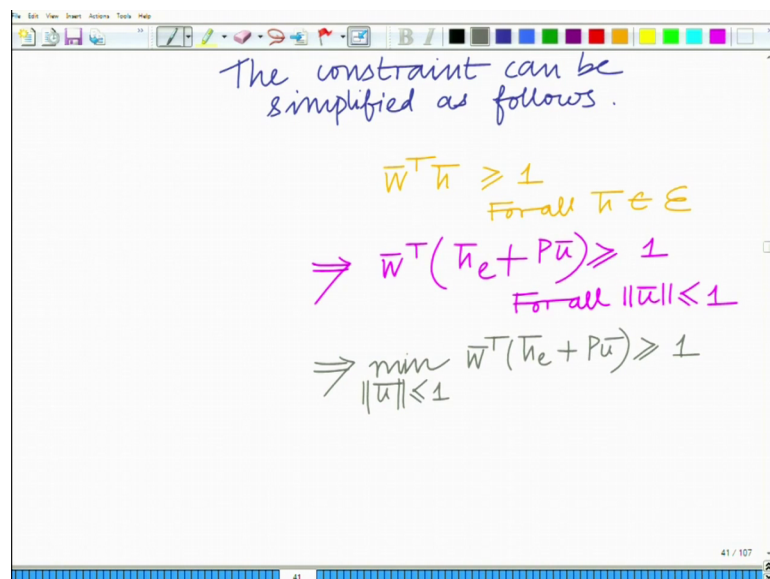 File Edit View Insert Actions Tools Help
B I
The constraint can be
simplified as follows.
w̅ᵀ h̅ ⩾ 1
For all h̅ ∈ ℰ
⇒ w̅ᵀ(h̅e + Pu̅) ⩾ 1
For all ||u̅|| ⩽ 1
⇒ min w̅ᵀ(h̅e + Pu̅) ⩾ 1
||u̅|| ⩽ 1
41 / 107
41